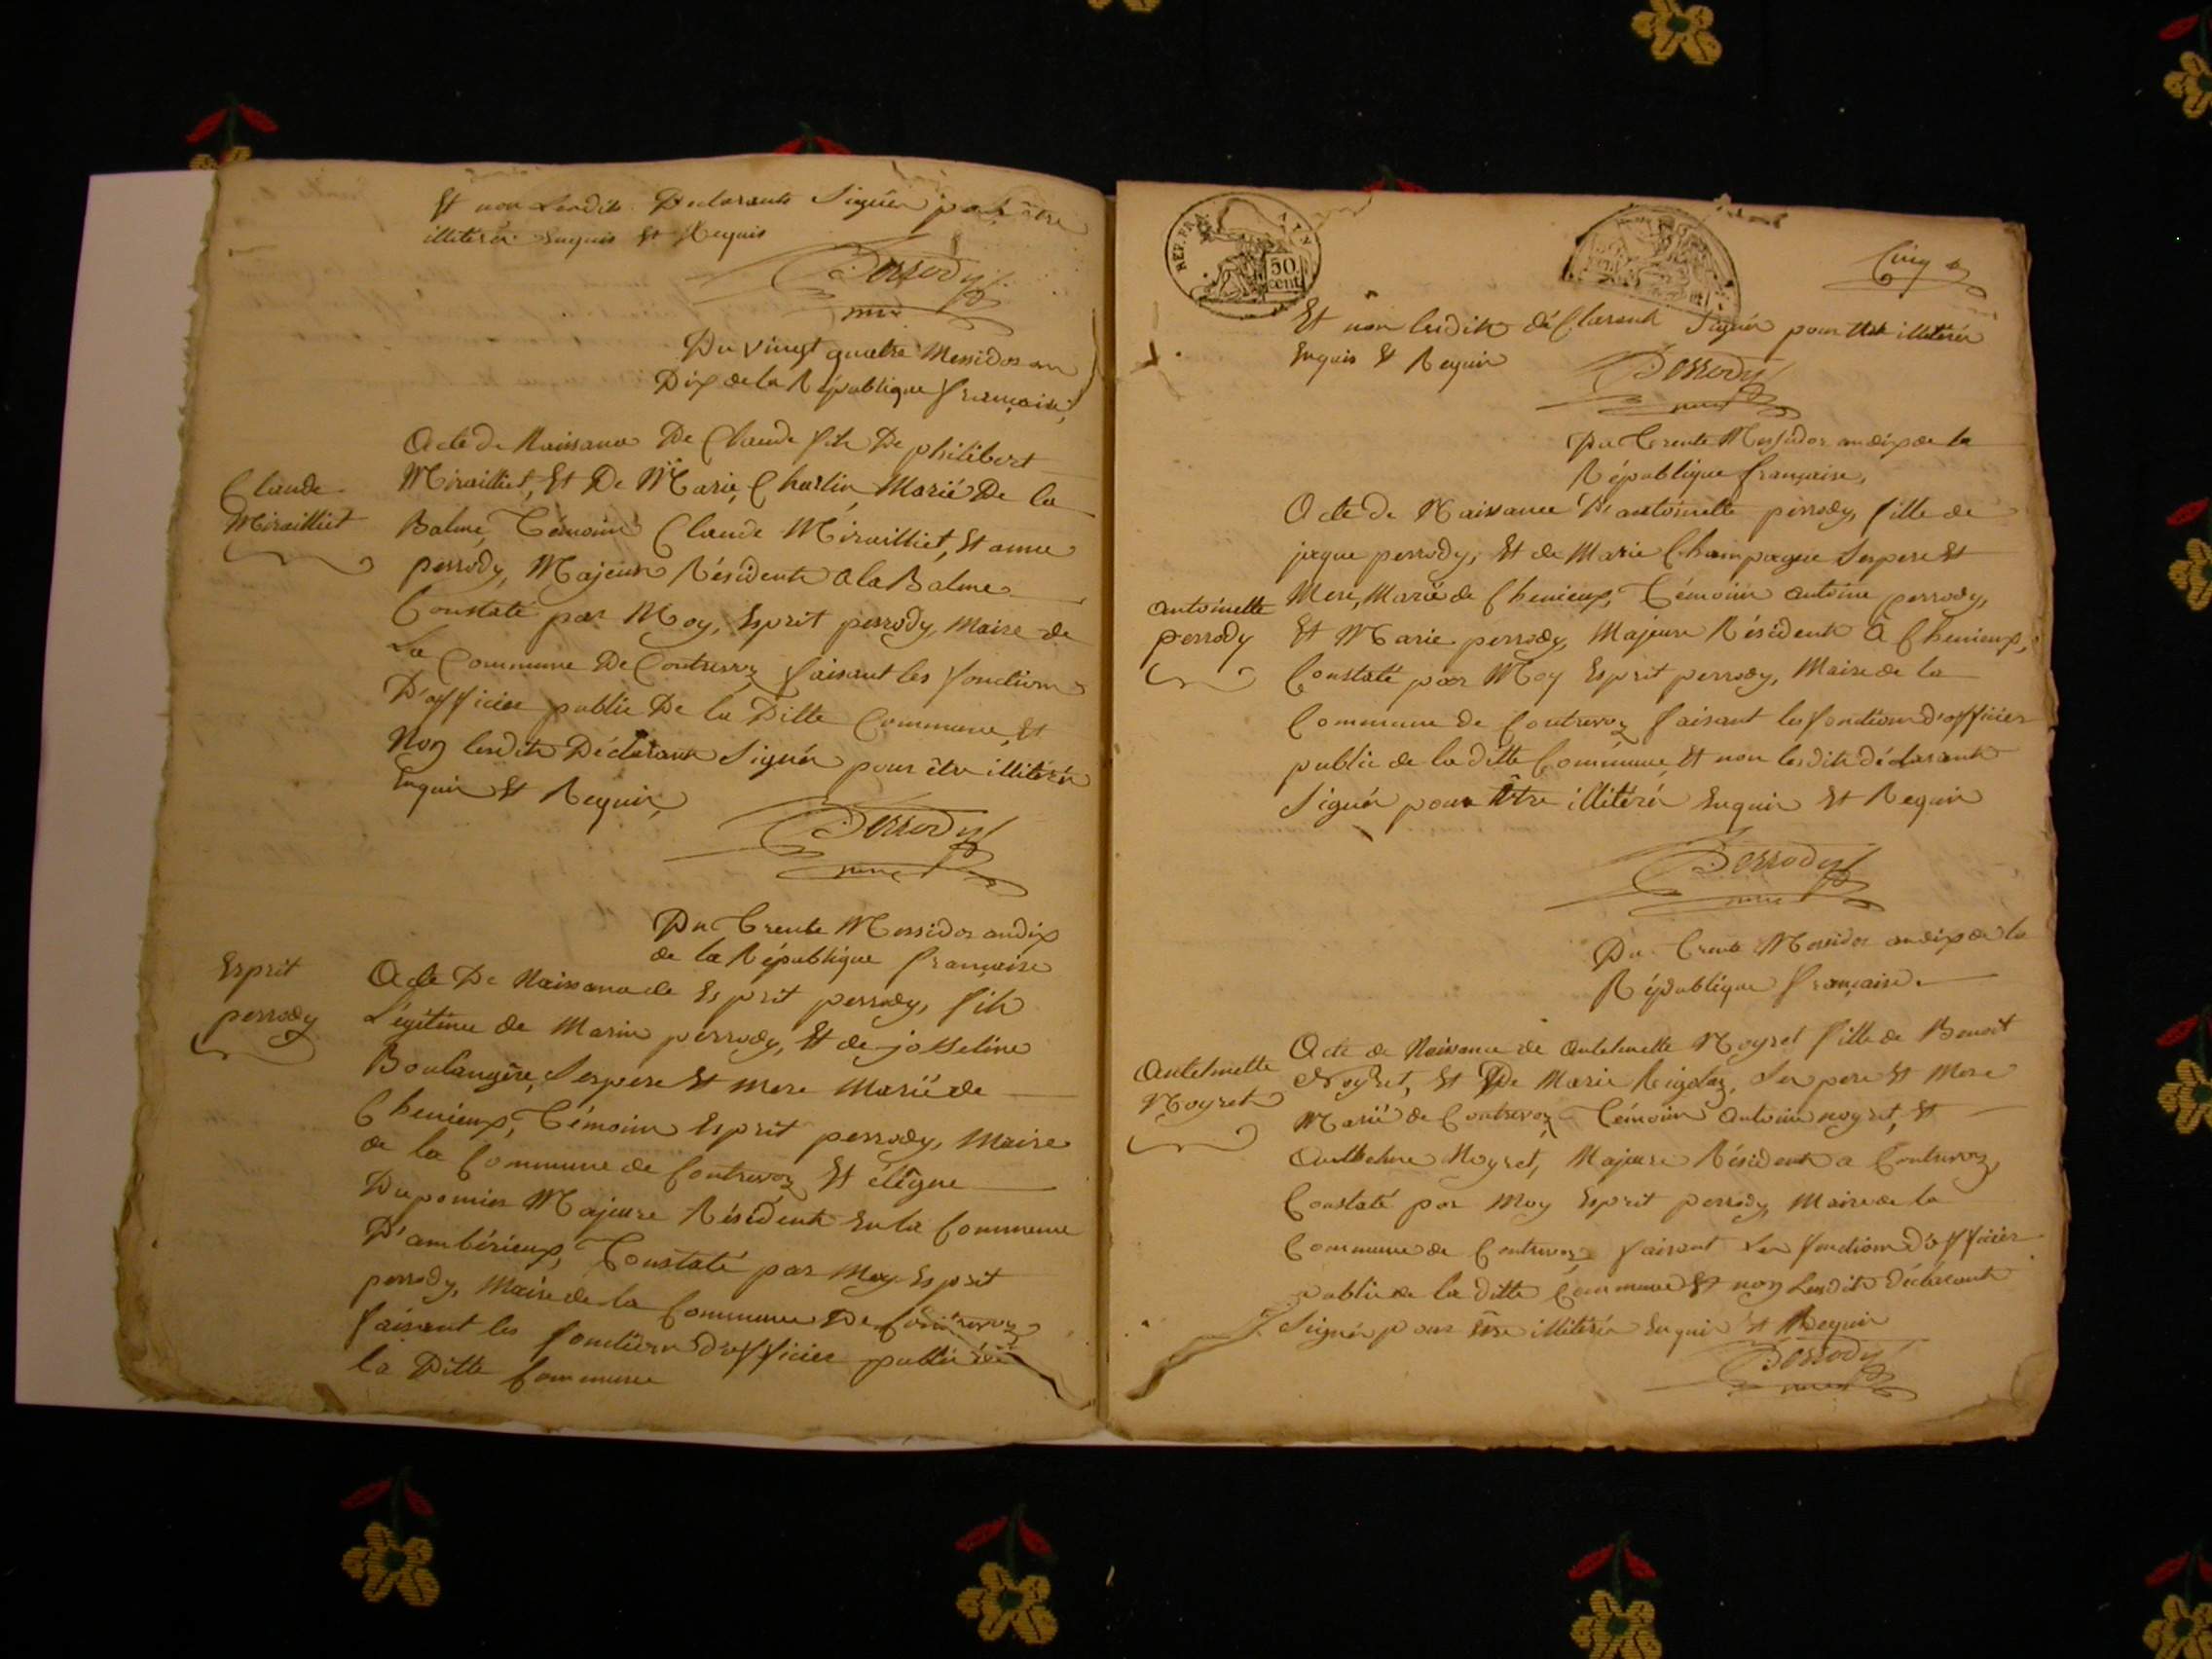 Et non Lesdits Declarants Signés pour être
illiterés Enquis Et Requis
Perrody
Du vingt quatre Messidor an
Dix de la République française,
Acte de Naissance De Claude fils De philibert
Mirailliet, Et De Marie Charlin Marié De la
Balme, Témoins Claude Miraillet, Et anne
perrody, Majeurs Résidents a la Balme
Constaté par Moy, Esprit perrody, Maire de
La Commune De Contrevoz faisant les fonctions
D'officier public De la Ditte Commune, Et
Non lesdits Déclarans Signés pour être illiterés
Enquis Et Requis,
Claude
Miraillliet
Perrody
Du Trente Messidor an dix
de la République française
Esprit
perrody
Acte De Naissance de Esprit perrody, fils
Légitime de Marin perrody, Et de josseline
Boulangère, Ses pere Et mere Marié de
Chenieux, Témoins Esprit perrody, Maire
de la Commune de Contrevoz Et
Dupomier Majeurs Résidents En la Commune
D'ambérieux, Constaté par Moy Esprit
perrody, Maire de la Commune De Contrevoz
faisant les fonctions D'officier public de
la Ditte Commune
REP. FRA.
50
cent
Cinq
Et non lesdits déClarants Signés pour être illitérés
Enquis Et Requis
Perrody
Du Trente Messidor an dix de la
République française,
Acte de Naissance D'antoinette perrody, fille de
jaque perrody, Et de Marie Champagne Ses pere Et
Mere, Marié de Chenieux, Témoins antoine perrody,
Et Marie perrody, Majeurs Résidents à Chenieux,
Constaté par Moy Esprit perrody, Maire de la
Commune de Contrevoz faisant les fonctions d'officier
public de la ditte Commune Et non lesdits déclarants
Signés pour Être illitérés Enquis Et Requis
antoinette
perrody
Perrody
Du Trente Messidor an dix de la
République française.
Antelmette
Noyret
Acte de Naissance de antelmette Noyret fille de Benoit
Noyret, Et De Marie Rigolaz, Ses pere Et Mere
Marié de Contrevoz Témoins Antoine noyret, Et
Anthelme Noyret, Majeurs Résidents a Contrevoz,
Constaté par Moy Esprit perrody, Maire de la
Commune de Contrevoz faisant Les fonctions D'officier
public de la ditte Commune Et non Lesdits Déclarants
Signés pour être illitérés Enquis Et Requis
Perrody